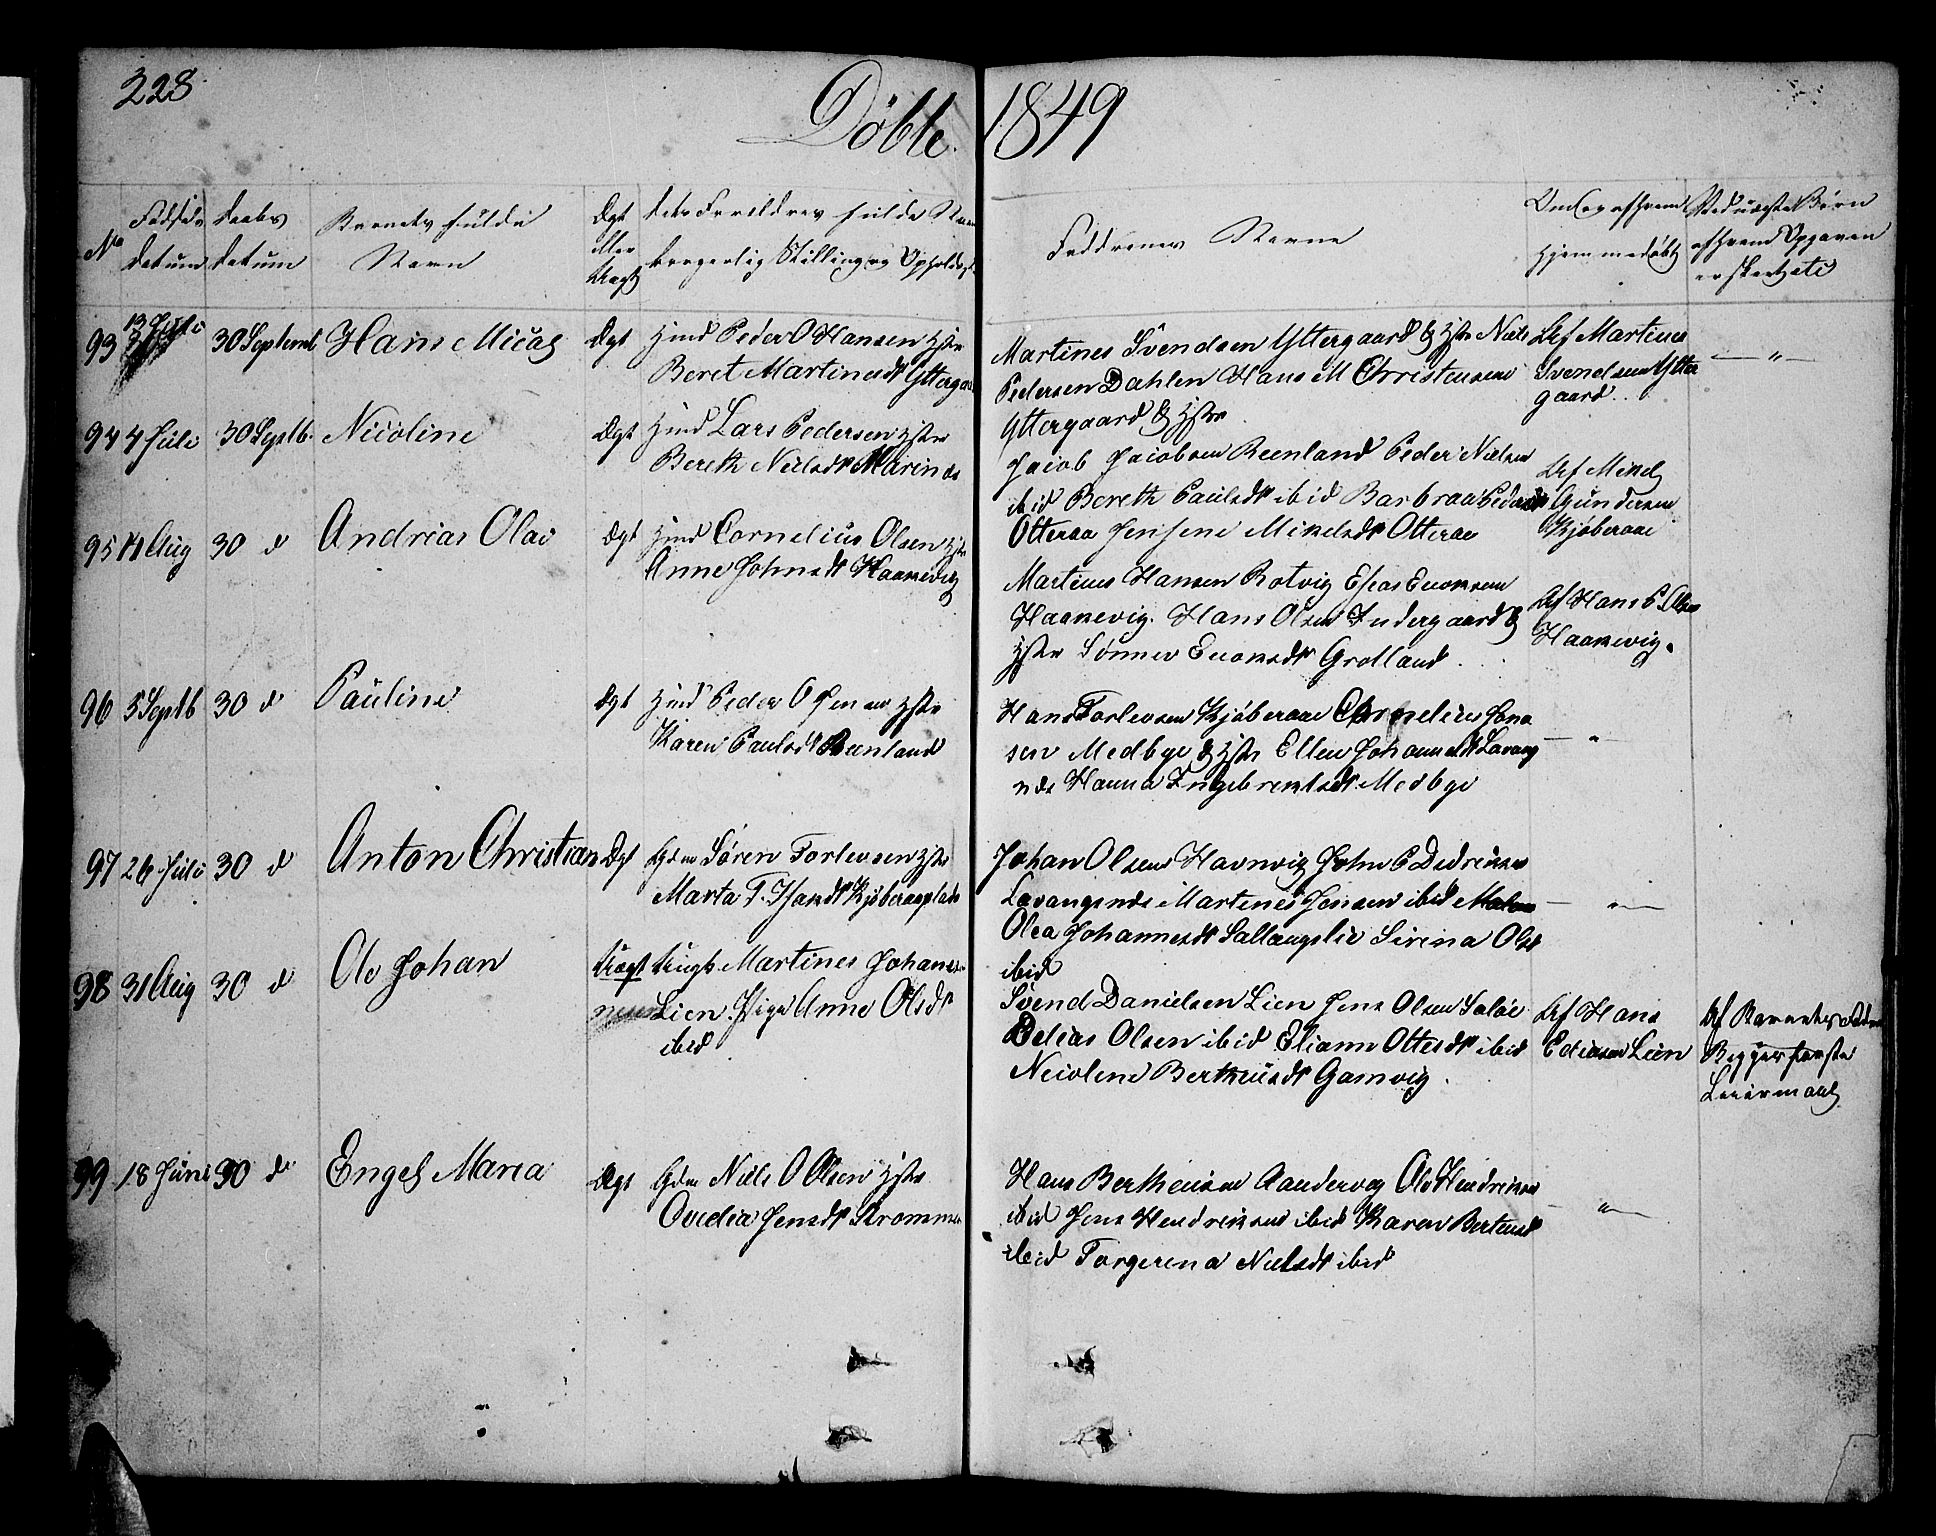 228
Döbte 1849
No
Fødsels
datum
Daabs
datum
Barnets fulde
Navn
Ægt
eller
Uægt
dets Forældres fulde Navn
borgerlig Stilling og Opholdst
Faddrenes Navne
hjemmedøbt
Børn
93
13 Juli
30 Septemb
Hans Micas
Ægt
Hmd Peder O Hansen Hstr
Beret Martinesdt Yttergaa
Martines Svendsen Yttergaard & Hstr Niels
Pedersen Dahlen Hans M Christensen
Yttergaard & Hstr
Af Martines
Svendsen Ytter
gaard
94 4 Juli 30 Septb. Nicoline
Ægt
Hmd Lars Pedersen Hstr
Bereth Nielsdt Marines
Jacob Jacobsen Reenland Peder Nielsen
ibid Bereth Paulsdt ibid Barbraa Peders
Otteraa Jensine Mikelsdt Otteraa
Af Mikel
Gundersen
Kjøberaae
95 Aug 30 d Andreas Olai
Ægt
Hmd Cornelius Olsen Hstr
Anne Johnsdt Haakevig
Martinus Hansen Rotvig Esias Enoksen
Haakevig. Hans Olsen Indergaard &
Hstr Sønnev Enoksdt Grolland.
Af Hans P Olsen
Haakevig.
96 5 Septb 30 d Pauline
Ægt
Hmd Peder O Jensen Hstr
Karen Paulsdt Reenland
Hans Torlevsen Kjøberaae Cornelius Jona
sen Medbye & Hstr Ellen Johannesdt Lavang
næs Hanna Ingebrektsdt Medbye
97 26 Juli 30 d Anton Christian
Ægt
Gdm Sören Torlevsen Hstr
Marta T. Hansdt Kjøberaaplads
Johan Olsen Havnvig John P Didriksen
Lavangsnæs Martines Jensen ibid
Olea Johannesdt Sallangslie Sirena Olsdt
ibid
98 31 Aug 30 d Ole Johan
Uægt
Ungk. Martines Johannes
Lien. Pige Anne Olsdt
ibid
Svend Danielsen Lien Jens Olsen Saløe
Edias Olsen ibid Elianne Ottesdt ibid
Nicoline Bertheusdt Gamvig.
Af Hans
Ediasen Lien
Af Barnets
Begges første
Leiermaal
99 18 Juni 30 d Engel Maria
Ægt
Gdm Niels O Olsen Hstr
Ovedia Jensdt Krommen
Hans Bertheusen Aandervag Ole Hendriksen
ibid Jens Hendriksen ibid Karen Bertheusdt
ibid Torgerena Nielsdt ibid